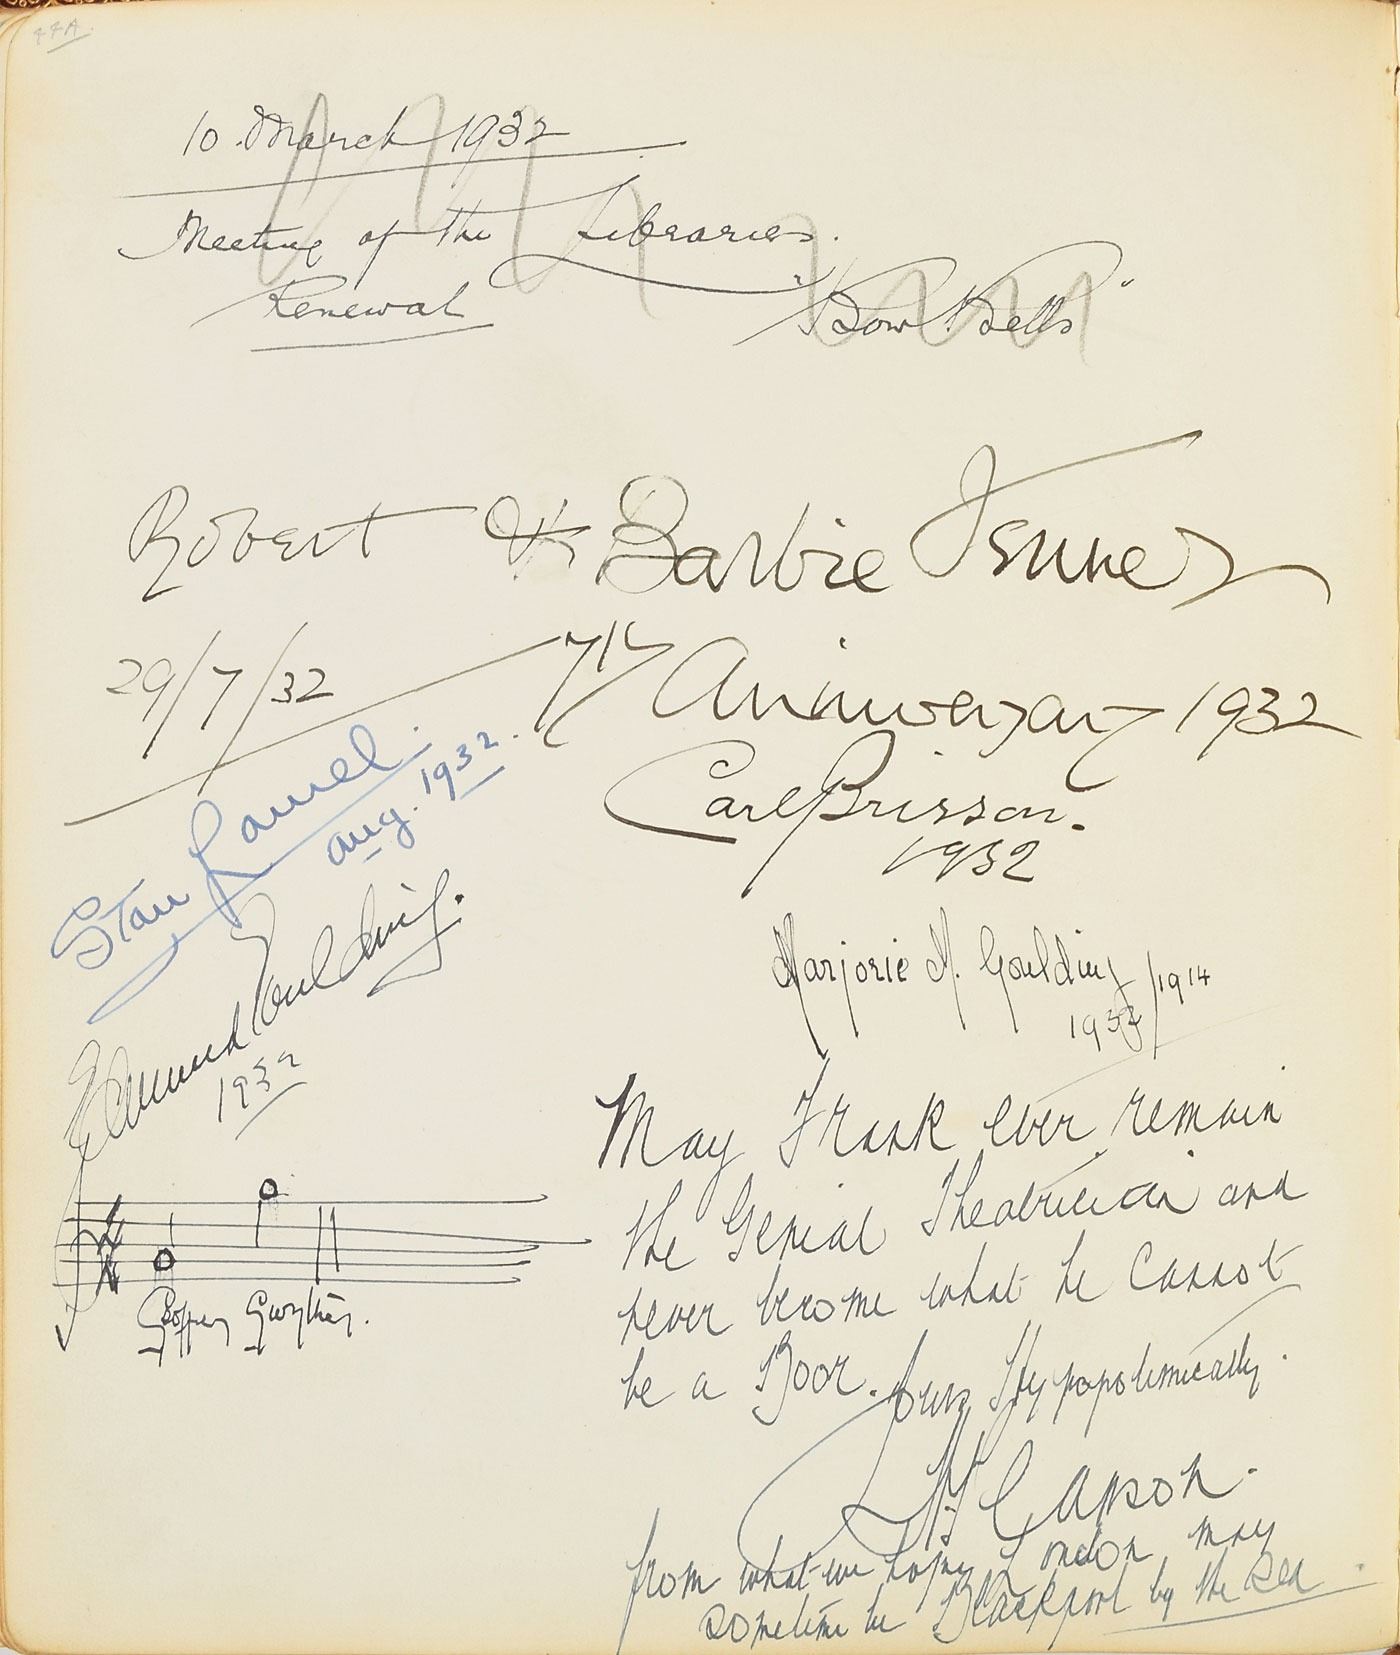 44A.
10. March 1932
Meeting of the Libraries.
Renewal
"Bow Bells"
Robert & Barbie Jenner
29/7/32
7th Anniversary 1932
Stan Laurel.
aug. 1932.
Carl Brisson.
1932
Edmund Goulding.
1932
Marjorie M. Goulding
1932/1914
May Frank ever remain
the Genial Theatrician and
never become what he cannot
be a Boor. Yours Hypopolemically.
from what we hope London may
sometime be Blackpool by the sea